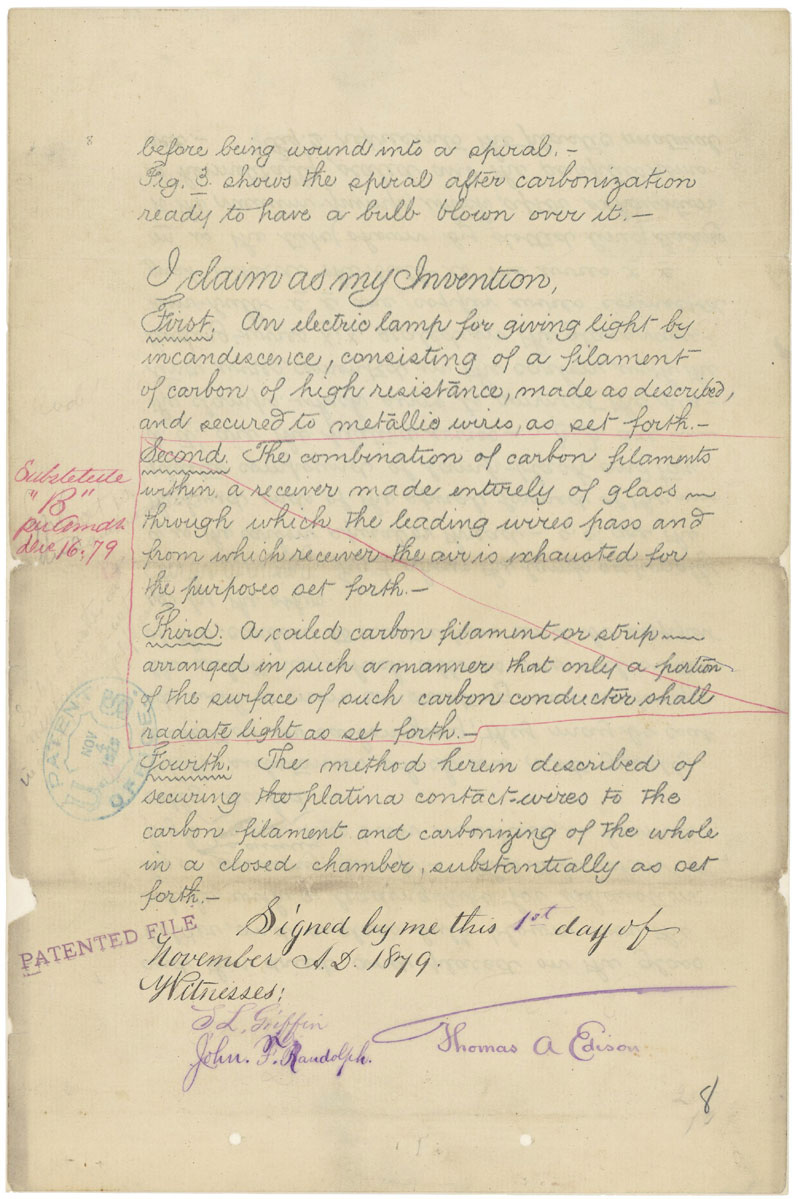 8
before being wound into a spiral.—
Fig. 3. shows the spiral after carbonization
ready to have a bulb blown over it.—
I claim as my Invention,
First. An electric lamp for giving light by
incandescence, consisting of a filament
of carbon of high resistance, made as described,
and secured to metallic wires, as set forth.—
Second. The combination of carbon filaments
within a receiver made entirely of glass
through which the leading wires pass and
from which receiver the air is exhausted for
the purposes set forth.—
Third. A coiled carbon filament or strip
arranged in such a manner that only a portion
of the surface of such carbon conductor shall
radiate light as set forth.—
Fourth. The method herein described of
securing the platina contact-wires to the
carbon filament and carbonizing of the whole
in a closed chamber, substantially as set
forth.—
Signed by me this 1st day of
November A.D. 1879.
Witnesses:
S. L. Griffin
John. F. Randolph.
Thomas A Edison
Substitute
"B"
dec. 16. 79
PATENT OFFICE
NOV
1879
U
PATENTED FILE
8